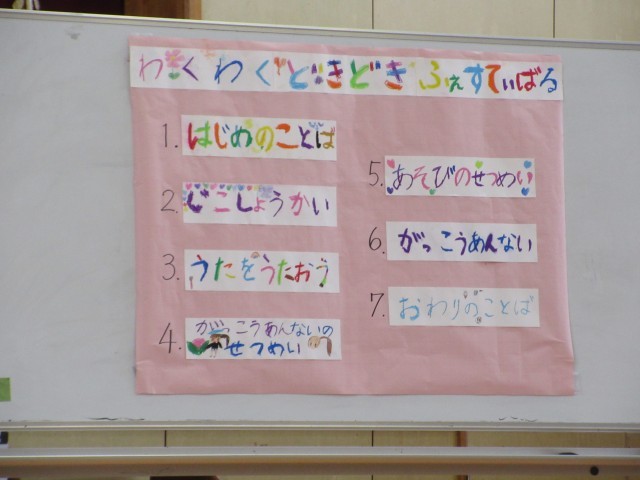 わくわくどきどきふぇすてぃばる
1. はじめのことば
2. じこしょうかい
3. うたをうたおう
4. がっこうあんないの
せつめい
5. あそびのせつめい
6. がっこうあんない
7. おわりのことば